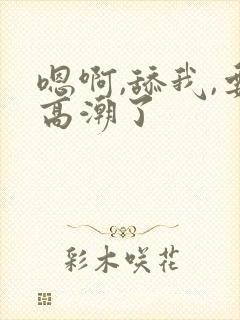 嗯啊,舔我,
高潮了
彩木咲花